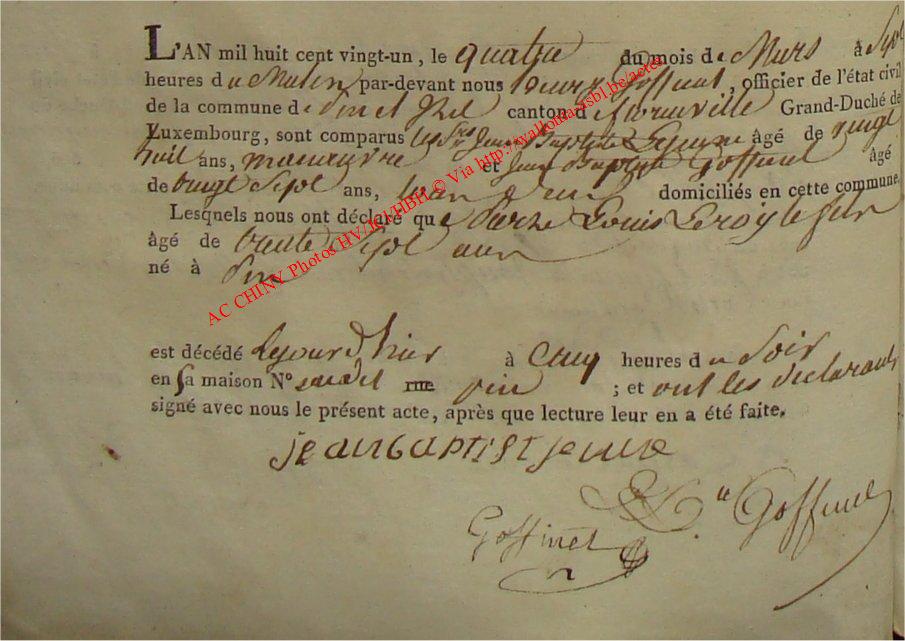 L'AN mil huit cent vingt-un, le quatre du mois de Mars à Sept
heures du Matin par-devant nous Goffinet, officier de l'état civil
de la commune de Pin et Izel canton de florenville Grand-Duché de
Luxembourg, sont comparus les Srs Jean Baptiste Lejeune âgé de vingt
huit ans, manouvre et Jean Baptiste Goffinet âgé
de vingt Sept ans, domiciliés en cette commune.
Lesquels nous ont déclaré que Pierre Louis Leroy le fils
âgé de trente Sept ans
né à Pin
est décédé le jour d'hier à Cinq heures du Soir
en sa maison N° audit rue pin ; et ont les declarants
signé avec nous le présent acte, après que lecture leur en a été faite.
jean baptist jeune
Goffinet
Goffinet
AC CHINY Photos HV/JCLHBH © Via http://www.wallonia-asbl.be/actes